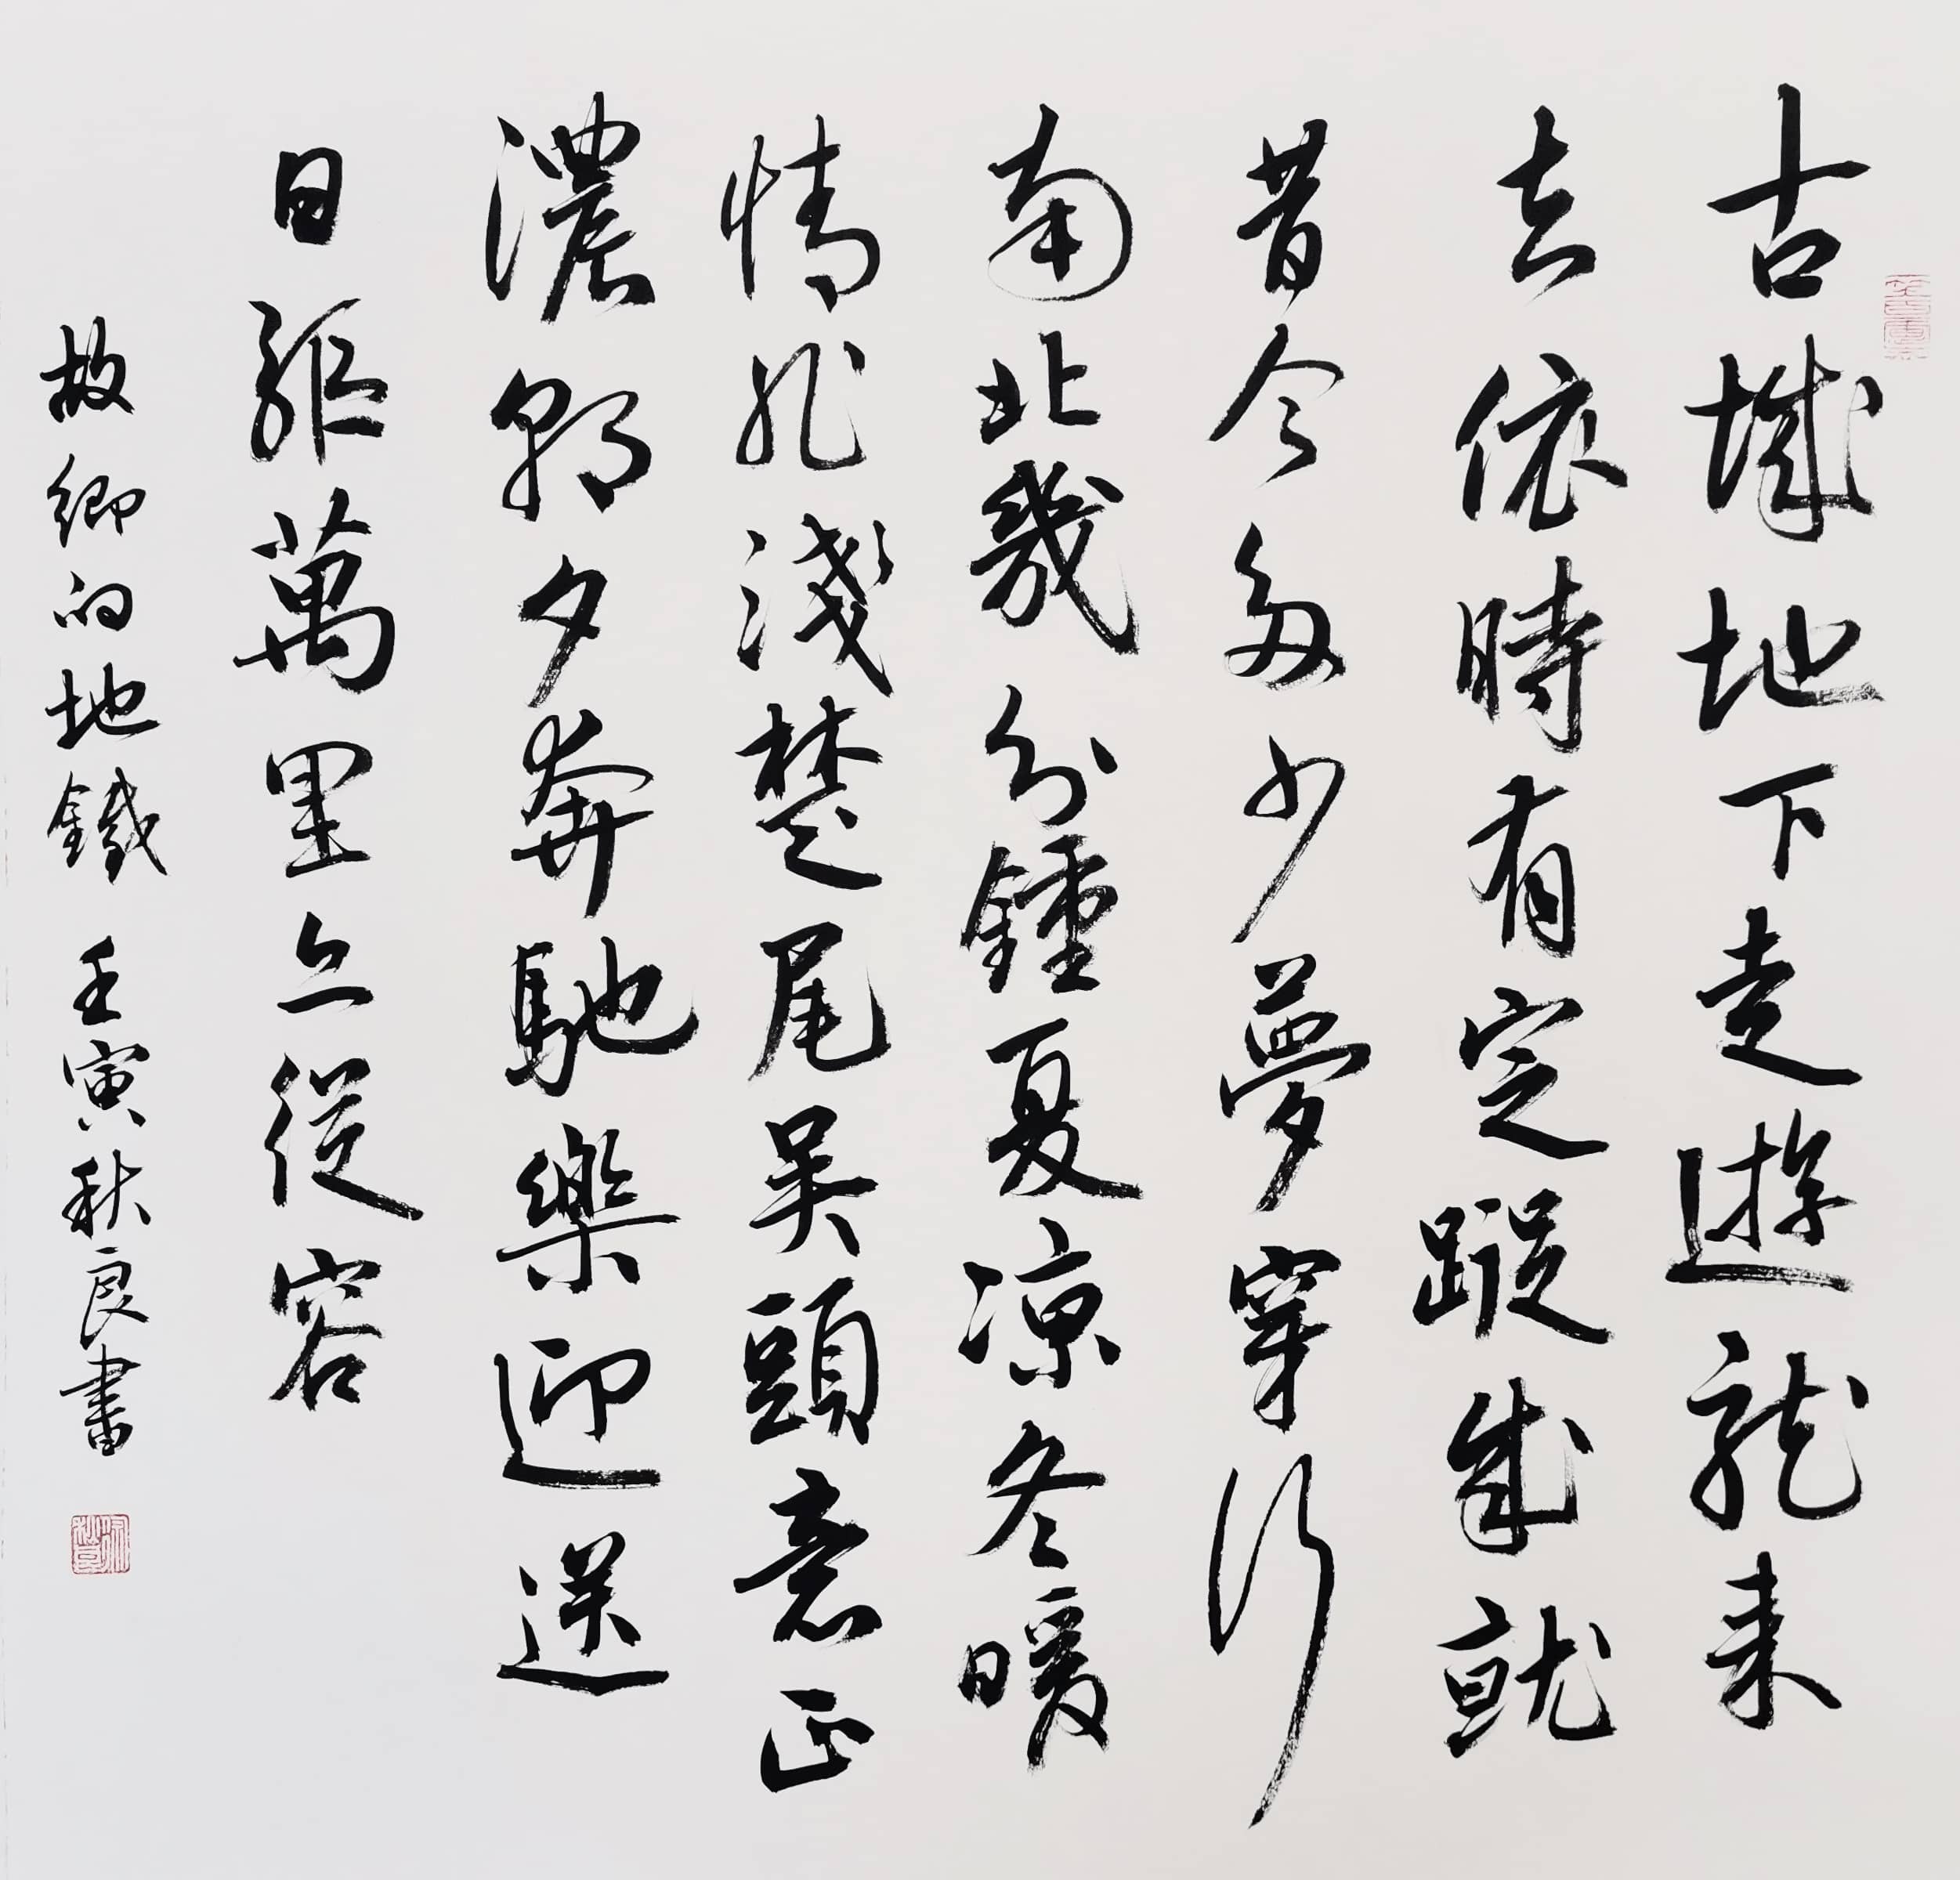 古城地下走遊龍来
去依時有定蹤成就
昔今多少夢穿行
南北幾分鍾夏凉冬暖
情非淺楚尾吴頭意正
濃朝夕奔馳樂迎送
日驅萬里亦從容
故鄉的地鐵 壬寅秋良書